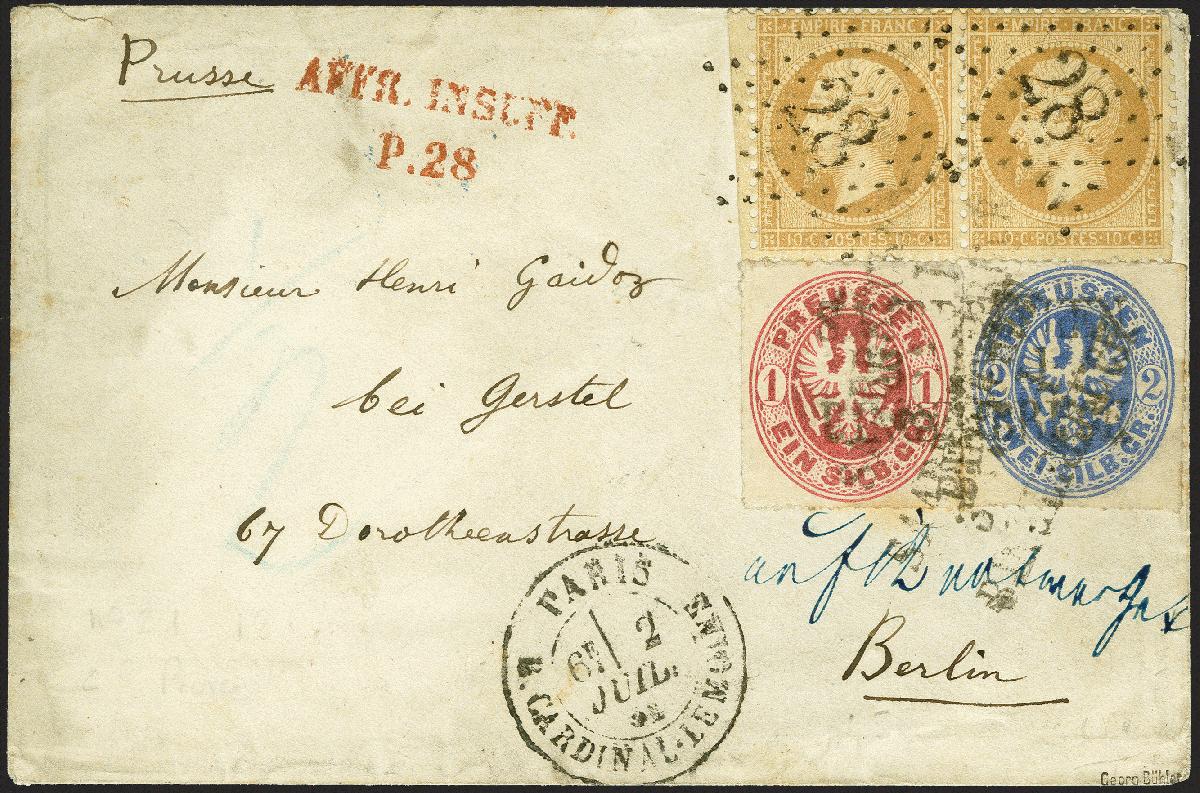 Prusse
AFFR. INSUFF.
P.28
EMPIRE FRANC
28
10·C·POSTES·10·C·
EMPIRE FRANC
28
10·C·POSTES·10·C·
PREUSSEN
1 1
EIN SILB.GR.
PREUSSEN
2 2
ZWEI·SILB.GR.
Monsieur Henri Gaidoz
bei Gerstel
67 Dorotheenstrasse
Berlin
PARIS
2
67
JUIL.
R. CARDINAL-LEMOINE
Georg Bühler